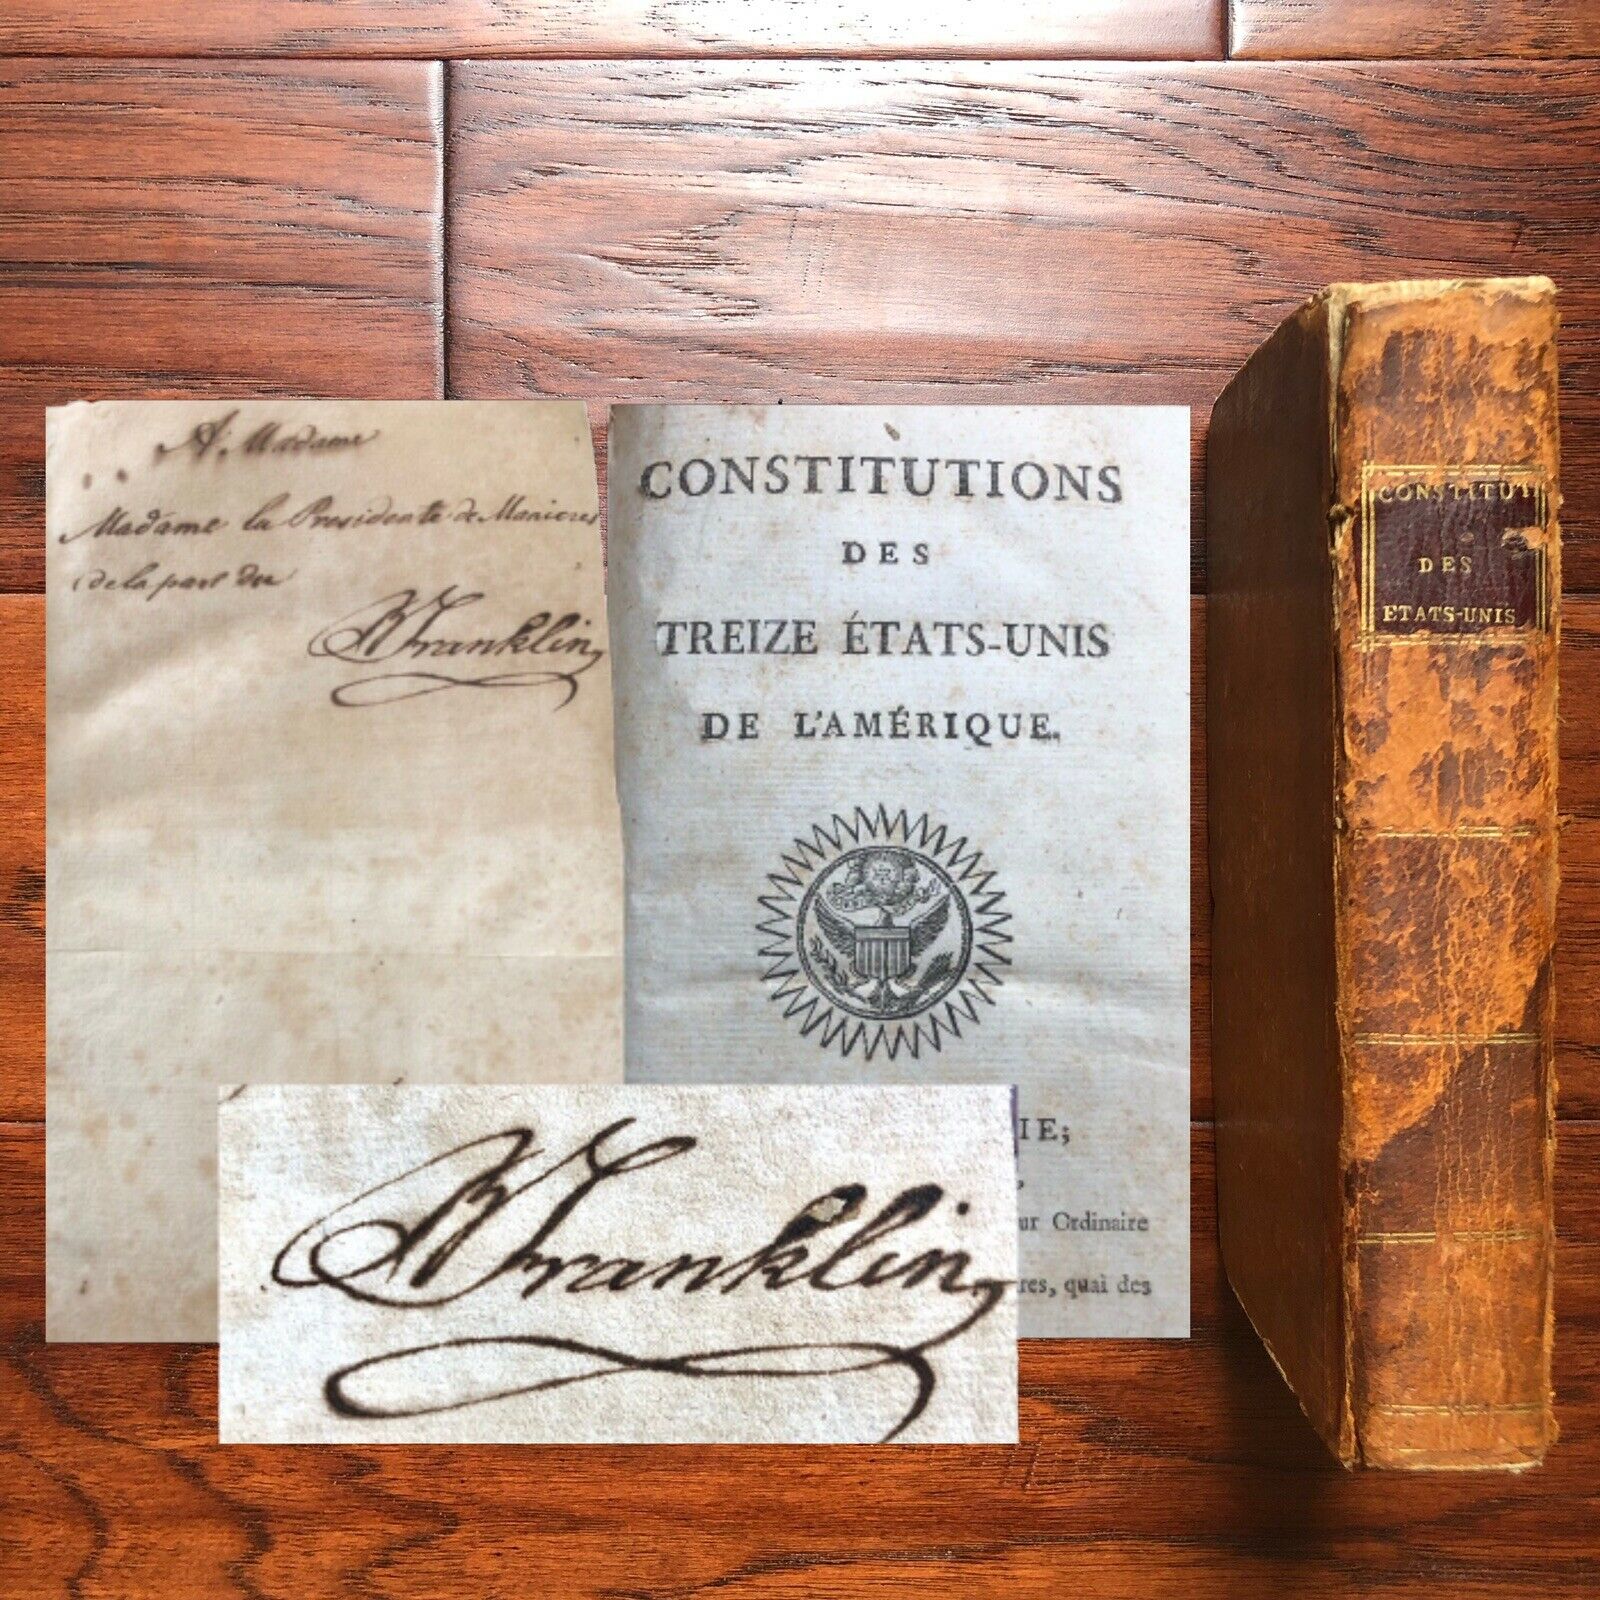 A. Madame
Madame la Presidente de Manieres
de la part du
B Franklin
CONSTITUTIONS
DES
TREIZE ÉTATS-UNIS
DE L'AMÉRIQUE.
IE;
ur Ordinaire
res, quai des
B Franklin
CONSTITUTI
DES
ETATS-UNIS